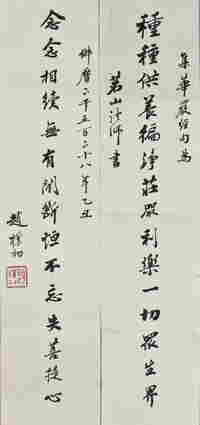 集華嚴經句為
種種供養徧淨莊嚴利樂一切眾生界
茗山法師書
佛曆二千五百二十八年乙丑
念念相續無有間斷恒不忘失菩提心
趙樸初